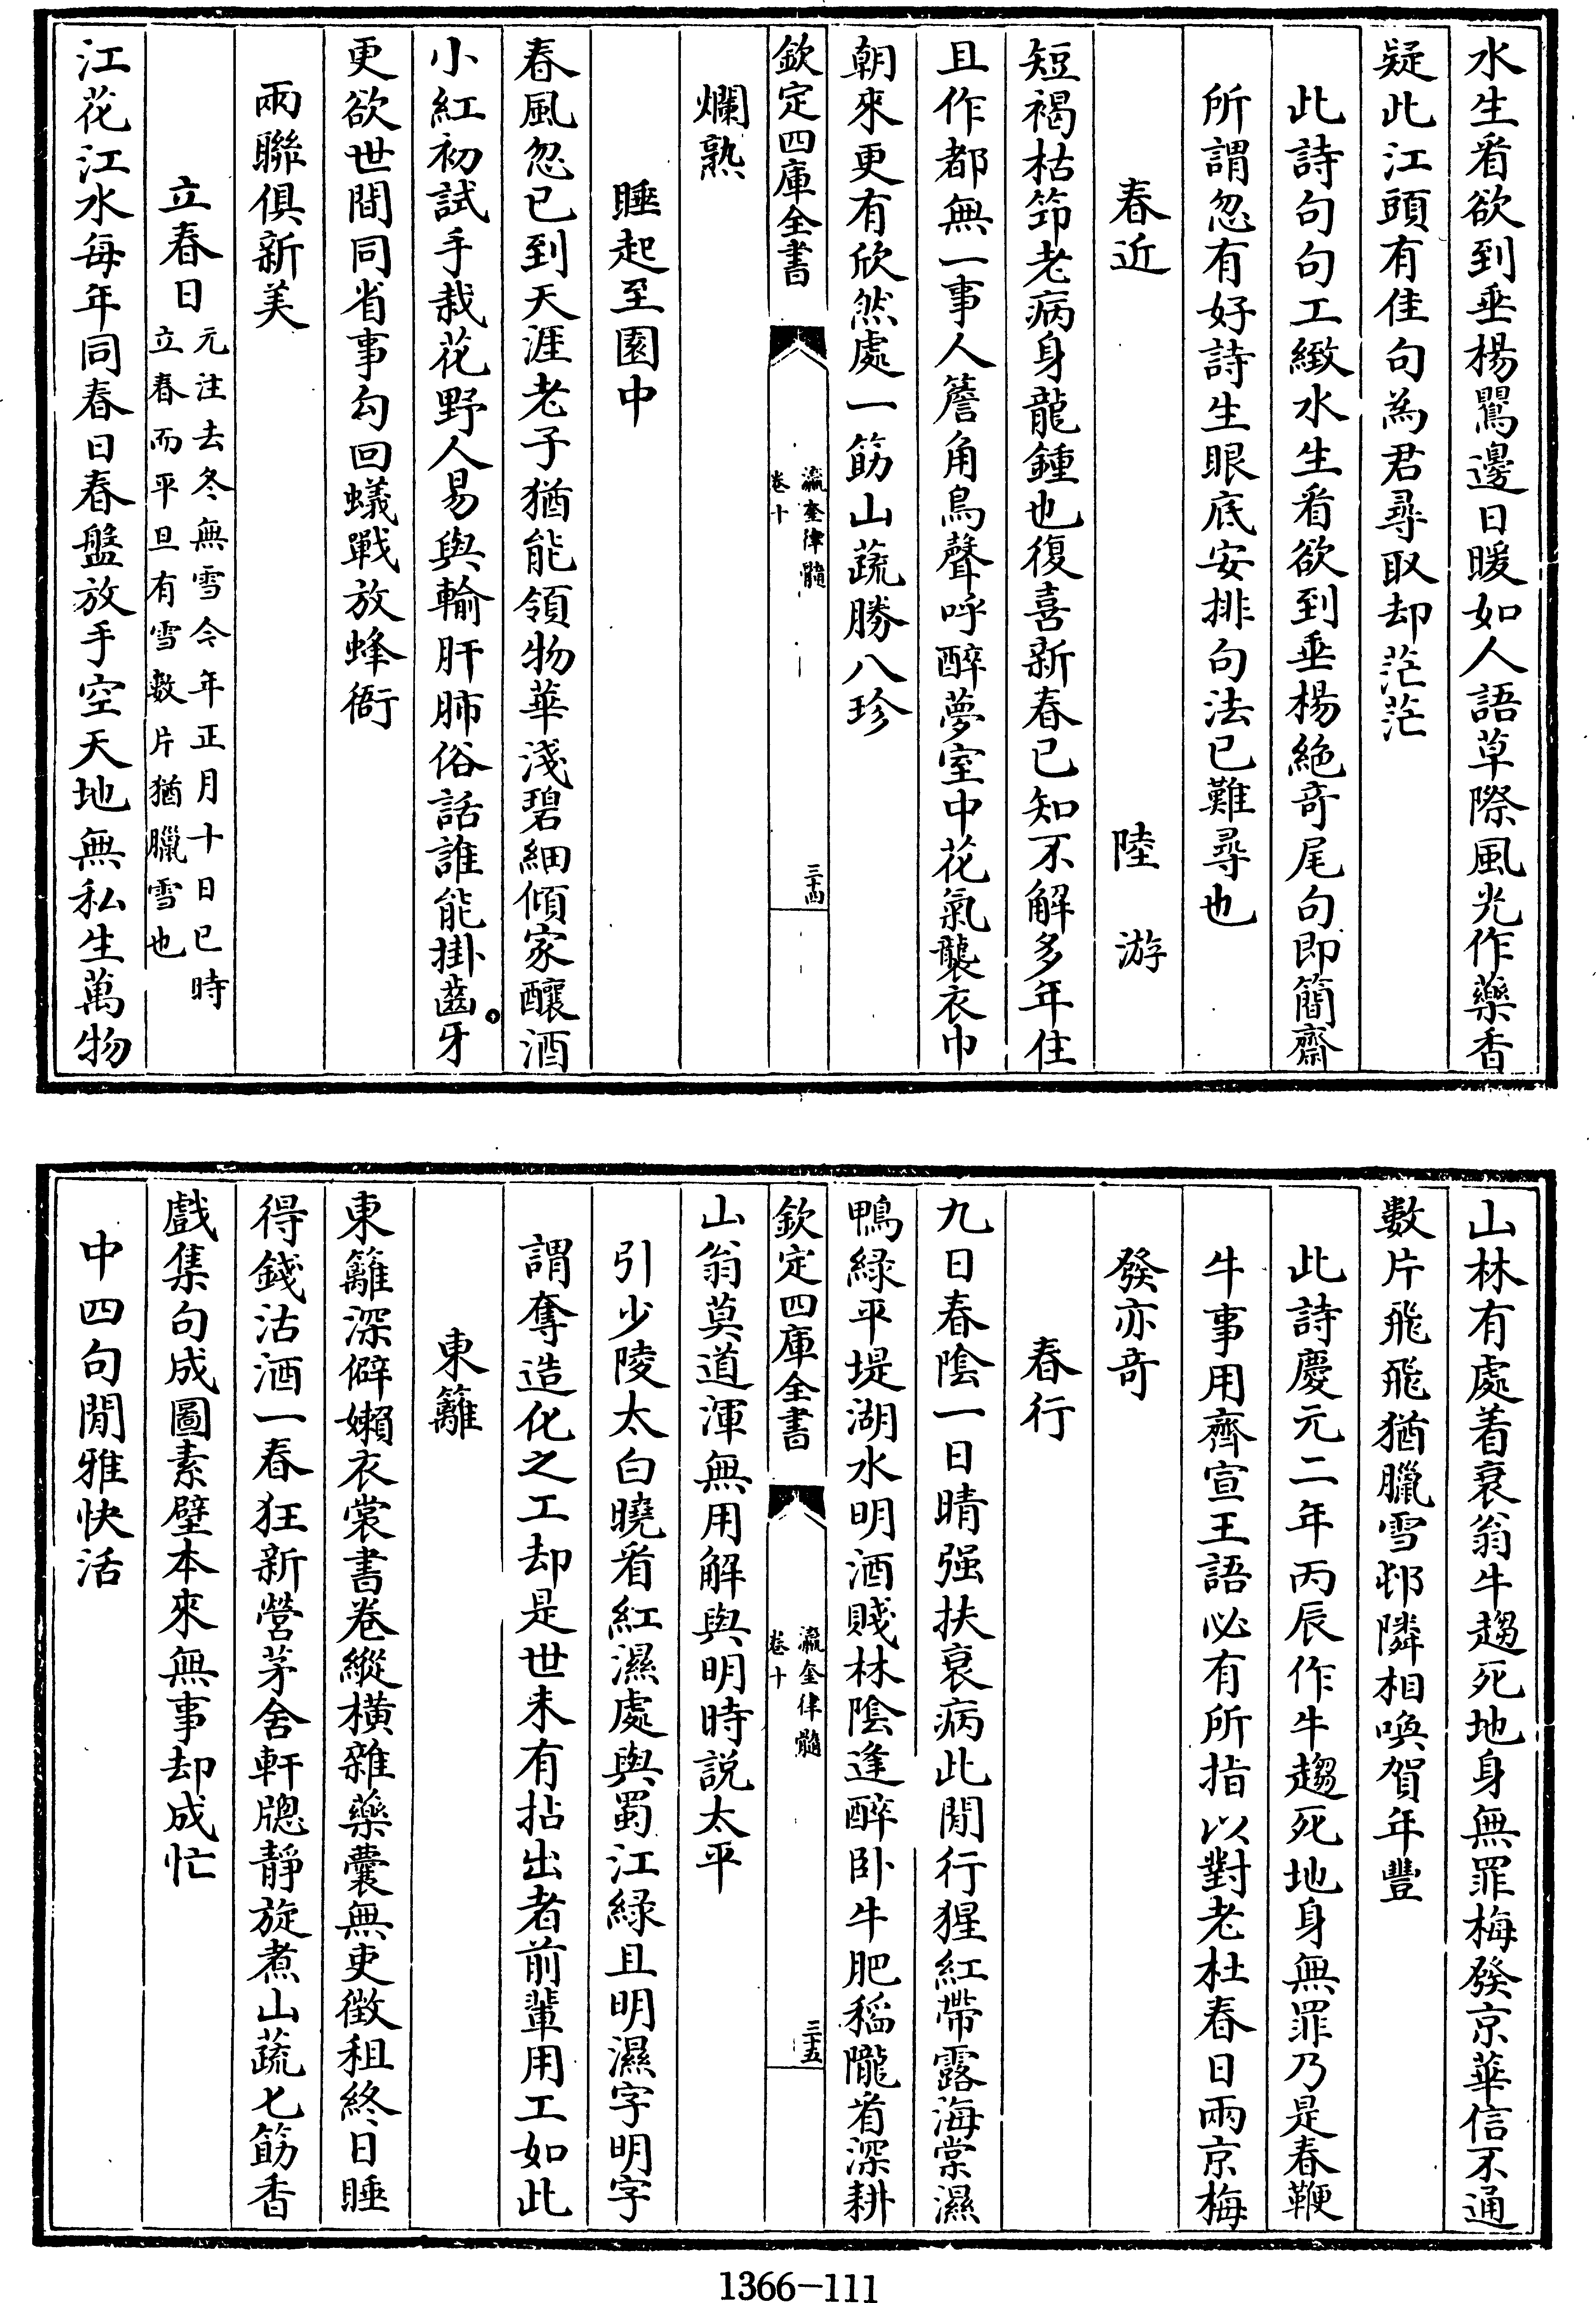 水生看欲到垂楊鸎邊日暖如人語草際風光作藥香
疑此江頭有佳句為君尋取却茫茫
此詩句句工緻水生看欲到垂楊絶奇尾句即簡齋
所謂忽有好詩生眼底安排句法已難尋也
春近 陸游
短褐枯笻老病身龍鍾也復喜新春已知不解多年住
且作都無一事人簷角鳥聲呼醉夢室中花氣襲衣巾
朝來更有欣然處一筯山蔬勝八珍
欽定四庫全書 瀛奎律髓 卷十 三十四
爛熟
睡起至園中
春風忽已到天涯老子猶能領物華淺碧細傾家釀酒
小紅初試手栽花野人易與輸肝肺俗話誰能掛齒牙
更欲世間同省事勾回蟻戰放蜂衙
兩聯俱新美
立春日 元注去冬無雪今年正月十日已時
立春而平旦有雪數片猶臘雪也
江花江水每年同春日春盤放手空天地無私生萬物
山林有處着衰翁牛趨死地身無罪梅發京華信不通
數片飛飛猶臘雪邨隣相喚賀年豐
此詩慶元二年丙辰作牛趨死地身無罪乃是春鞭
牛事用齊宣王語必有所指以對老杜春日兩京梅
發亦奇
春行
九日春陰一日晴强扶衰病此閒行猩紅帶露海棠濕
鴨緑平堤湖水明酒賤林陰逢醉卧牛肥稻隴看深耕
欽定四庫全書 瀛奎律髓 卷十 三十五
山翁莫道渾無用解與明時説太平
引少陵太白曉看紅濕處與蜀江緑且明濕字明字
謂奪造化之工却是世未有拈出者前輩用工如此
東籬
東籬深僻嬾衣裳書卷縱横雜藥囊無吏徴租終日睡
得錢沽酒一春狂新營茅舍軒牕靜旋煮山蔬匕筯香
戲集句成圖素壁本來無事却成忙
中四句閒雅快活
1366-111